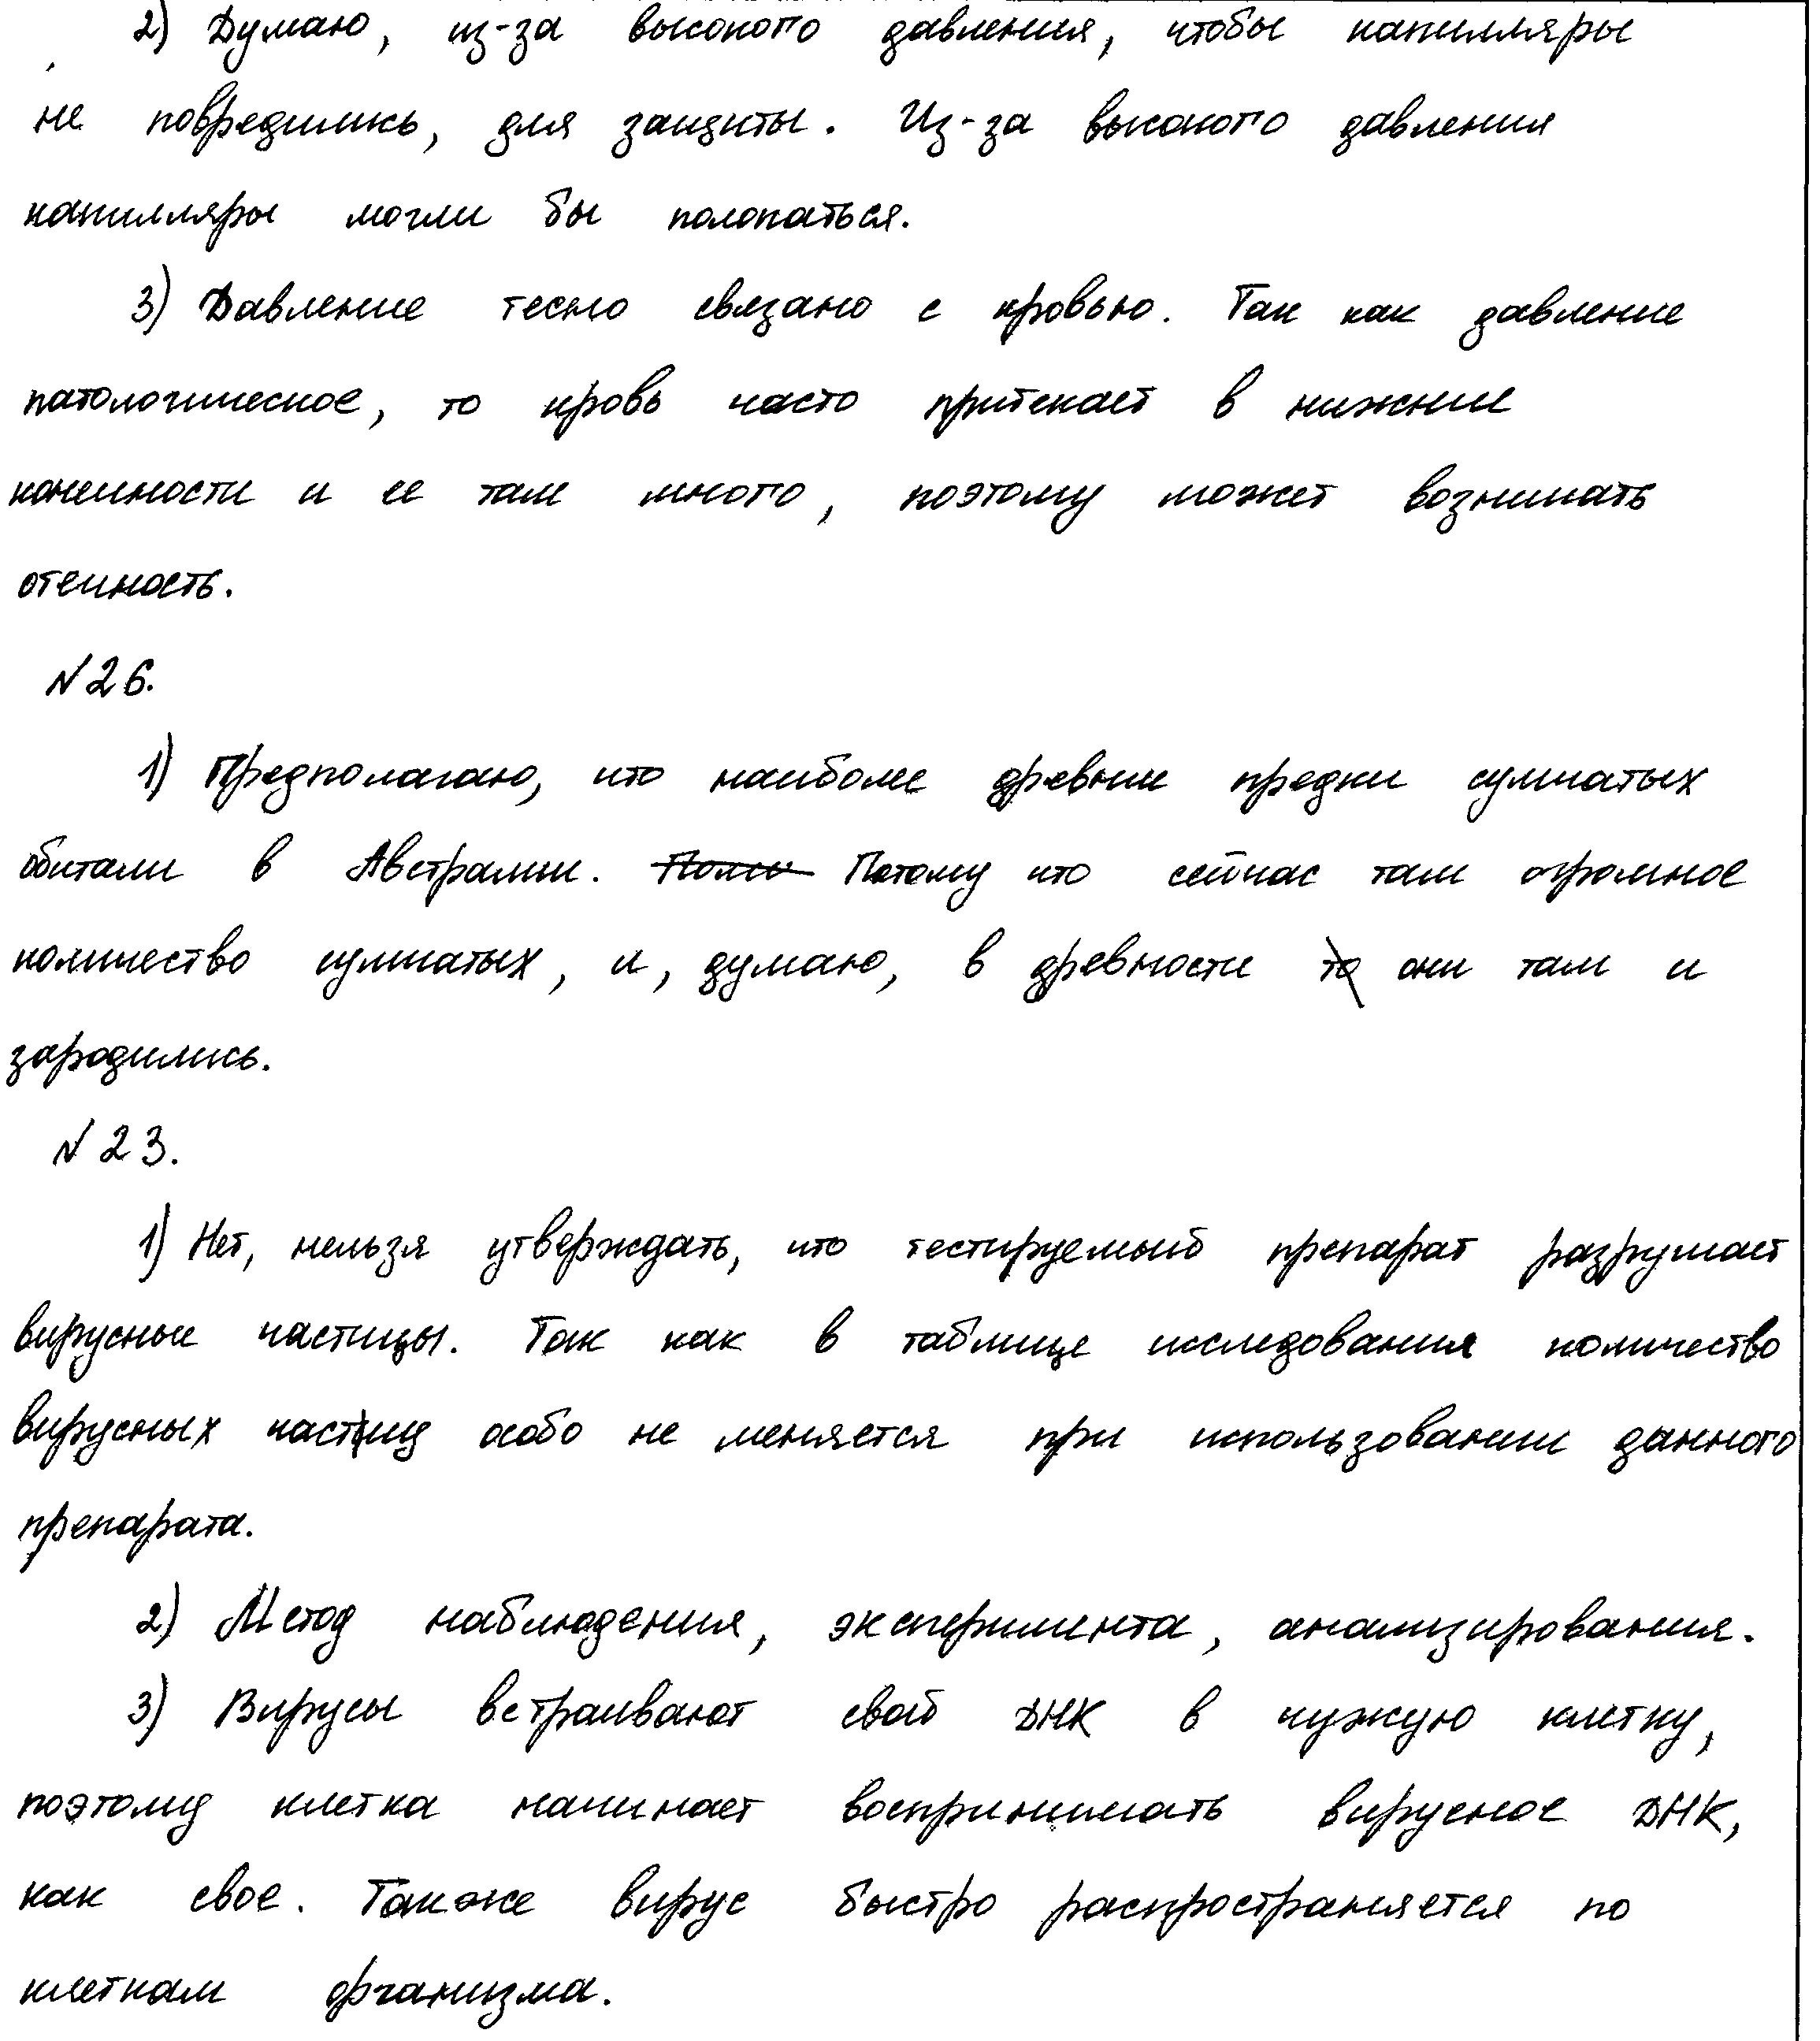 2) Думаю, из-за высокого давления, чтобы капилляры
не повредились, для защиты. Из-за высокого давления
капилляры могли бы полопаться.
3) Давление тесно связано с кровью. Так как давление
патологическое, то кровь часто притекает в нижние
конечности и ее там много, поэтому может возникать
отечность.
№26.
1) Предполагаю, что наиболее древние предки сумчатых
обитали в Австралии. Потому что сейчас там огромное
количество сумчатых, и, думаю, в древности они там и
зародились.
№23.
1) Нет, нельзя утверждать, что тестируемый препарат разрушает
вирусные частицы. Так как в таблице исследования количество
вирусных частиц особо не меняется при использовании данного
препарата.
2) Метод наблюдения, эксперимента, анализирования.
3) Вирусы встраивают свой ДНК в чужую клетку,
поэтому клетка начинает воспринимать вирусное ДНК,
как свое. Также вирус быстро распространяется по
клеткам организма.